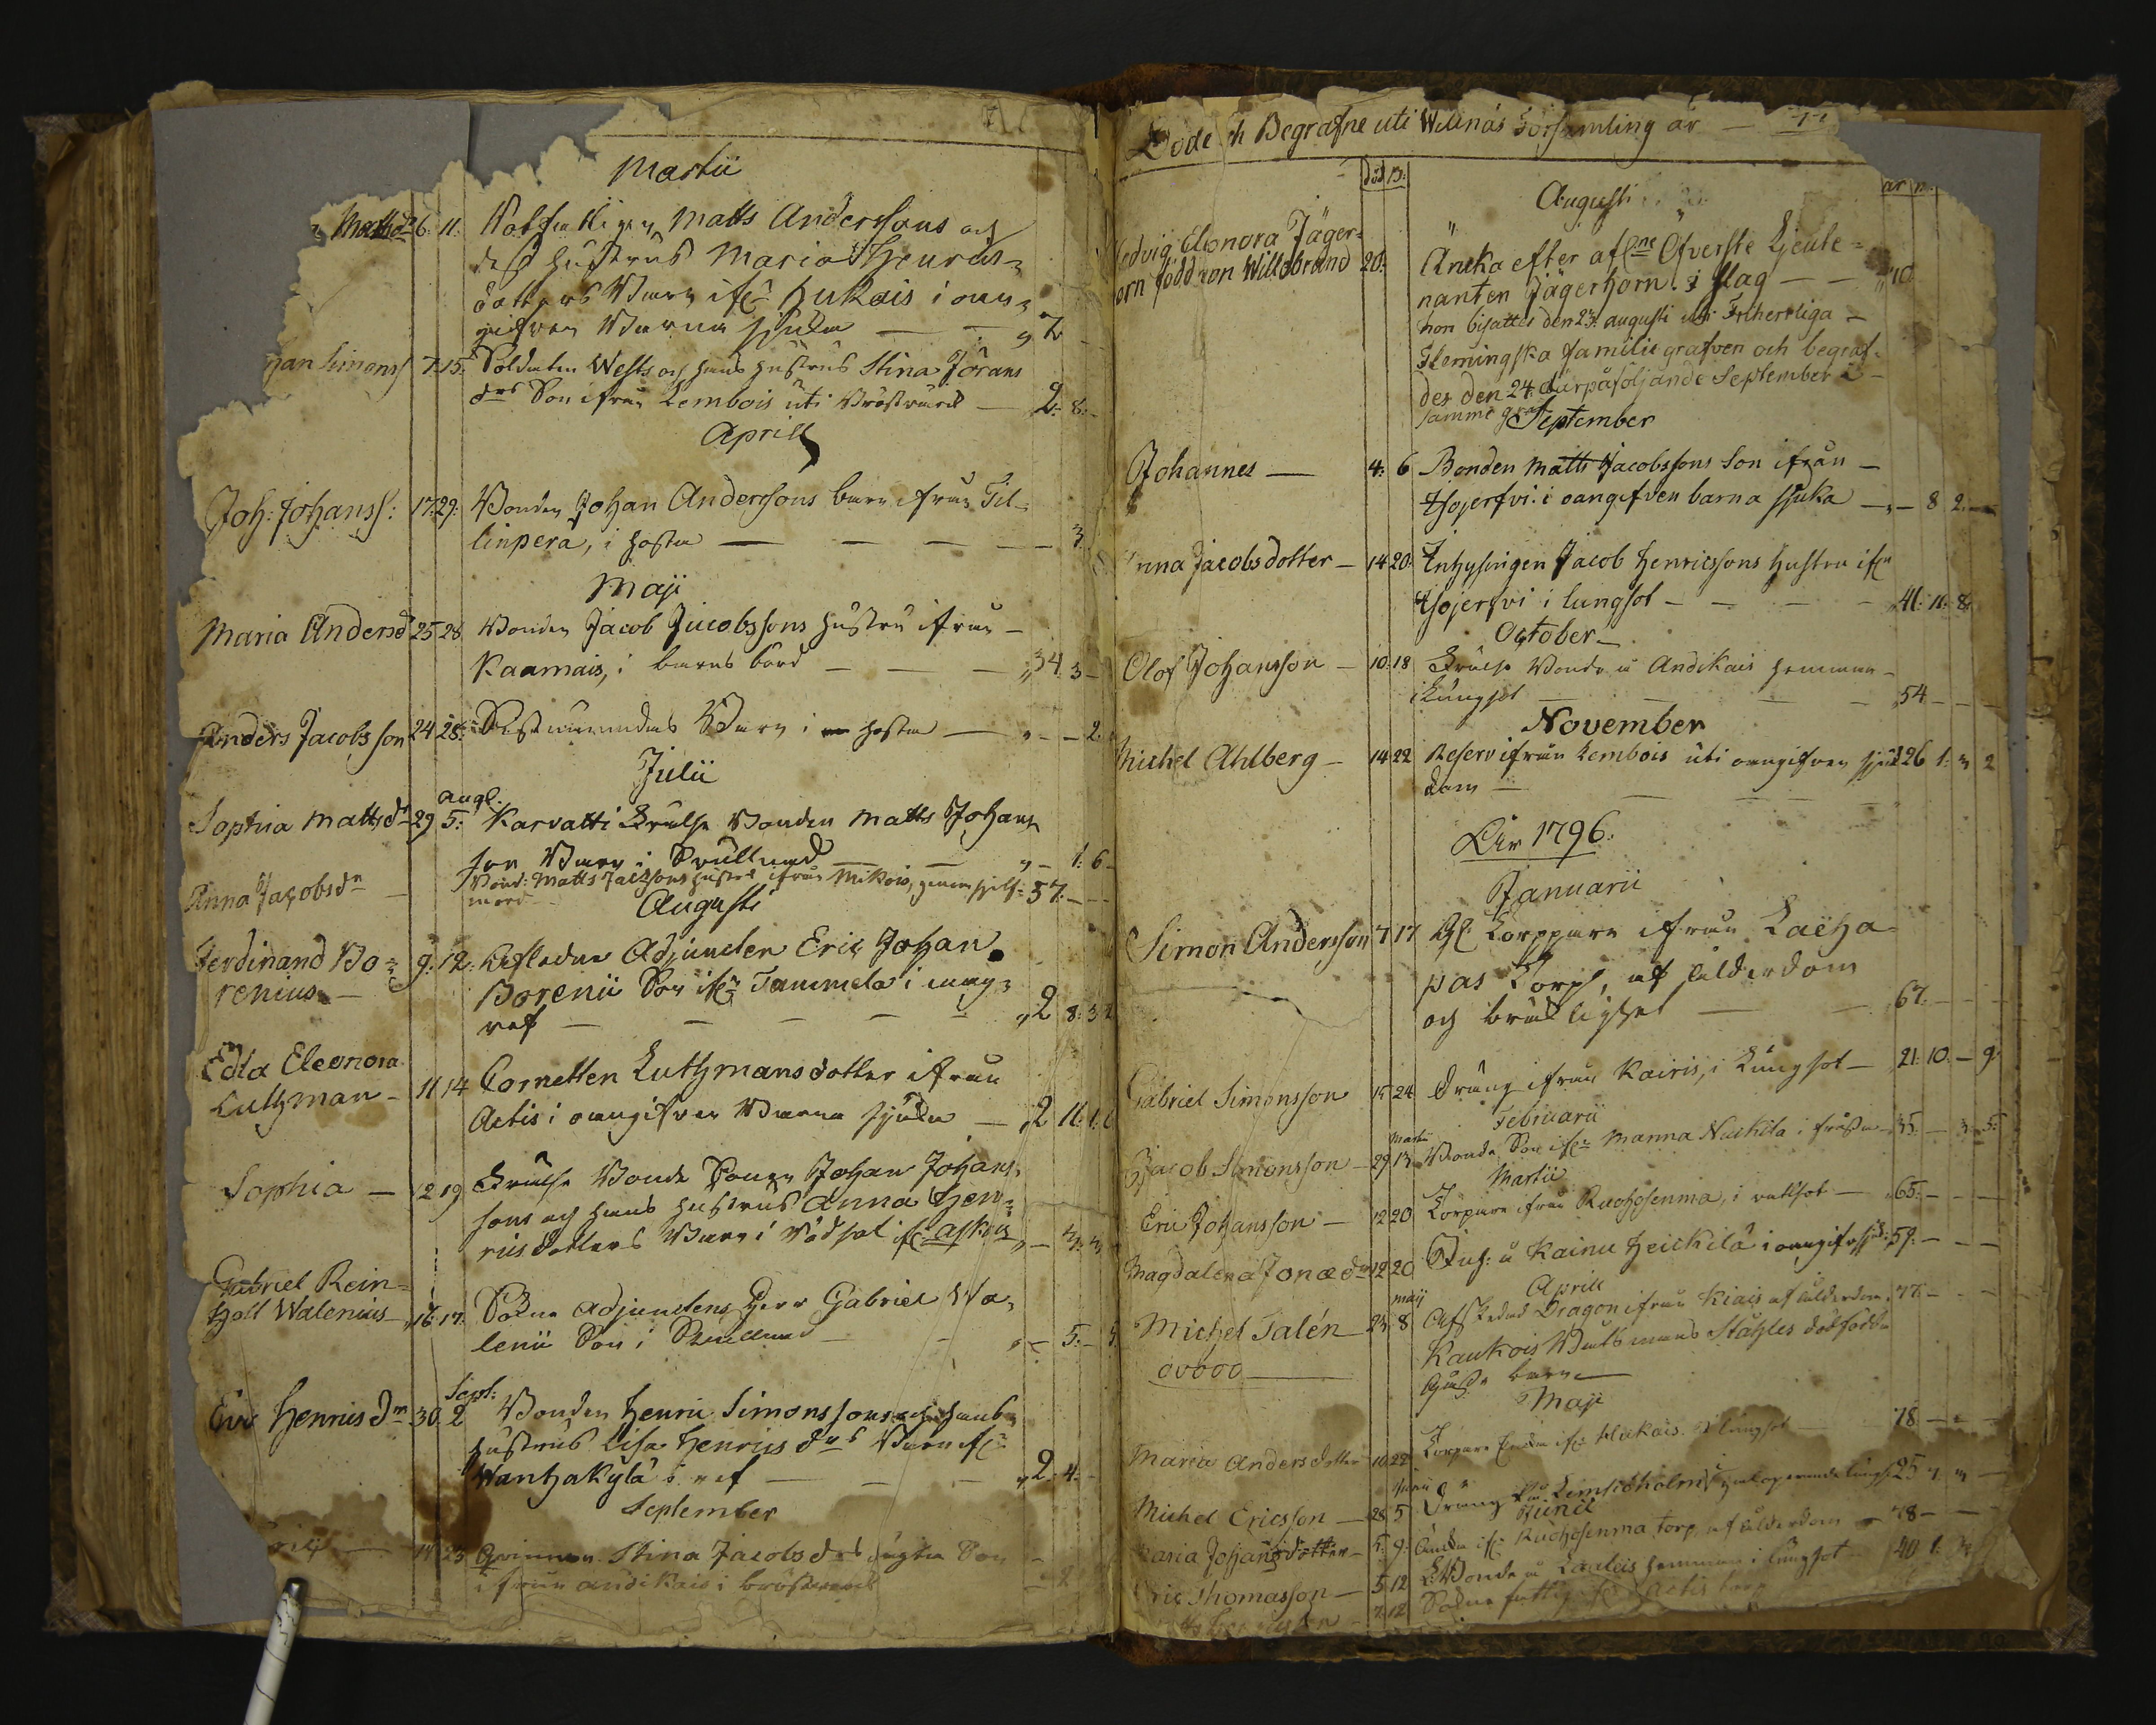 Martii
Mattsdr 6. 11. Rotfattigen Matts Anderssons och
dess hustrus Maria Henrics
dotters Barn ifrn Hukais i oan
gifven Barna sjuka — — 7
han Simonss 7. 15. Soldaten Wests och hans hustrus Stina Jörans
drs Son ifrån Lembois uti Bröstwärk — 2. 8.
Aprill
Joh: Johanss: 17. 29. Bonden Johan Anderssons barn ifrån Til-
linperä, i hosta — — — — 3.
Maji
Maria Andersdr 25 28 Bonden Jacob Jacobssons hustru ifrån —
Kaamais, i barns börd — — — 34 3 —
Anders Jacobsson 24 28. Barn i hosta — — 2.
Julii
Augl.
Sophia Mattsdr 29 5: Karvatti Frälse Bonden Matts Johans
son Barn i — — 1. 6 —
Anna Jacobsdr — Bond: Matts hustru ifrån Mikois, genom sjelf- 57. — —
mord —
Augusti
Ferdinand Bo- 9. 12. Afledne Adjuncten Eric Johan
renius — Borenii Son ifrn Tammela i mag-
ref — — — — — 2 8. 3
Edla Eleonora
Luthman — 11 14 Cornetten Luthmans dotter ifrån
Actis i oangifven Barna sjuka — 2 11. 1.
Sophia — 12 19 Frälse Bonde Sonen Johan Johans
sons och hans hustrus Anna Hen-
rics dotters Barn i Rödsot ifr Askois — 3.
Gabriel Rein-
hold Walenius — 16. 17. Sokne Adjunctens Herr Gabriel Wa-
lenii Son i — — 5. —
Sept:
Eva Henricsdr 30 2 Bonden Henric Simonssons och hans
hustrus Lisa Henricsdrs Barn ifrn
Wanhakylä i ref — — 2. 4. —
September
14 23 Qvinnan Stina Jacobsdrs oägta Son —
ifrån Andikais i bröstwärk — 2
Döde och Begrafne uti Willnäs Församling år —
död B: år m.
Augusti
Hedvig Elonora Jäger-
orn född von Willebrand 20. Äncka efter aflne Öfverste Lieute-
nanten Jägerhorn. i slag — — 70
hon bisattes den 23. augusti uti Friherrliga —
Flemingska familie grafven och begraf-
des den 24. därpåföljande September i —
samme graf
September
Johannes — 4. 6 Bonden Matts Jacobssons Son ifrån —
Hojerfvi. i oangifven barna sjuka — — 8 2. —
Anna Jacobsdotter — 14 20. Inhysingen Jacob Henricssons hustru ifrn
Hojerfvi i lungsot — — — — 41. 11. 8.
October —
Olof Johansson — 10. 18 Frälse Bonde å Andikais hemman —
i Lungsot — — — 54 — —
November
Michel Ahlberg — 14 22 Reserv ifrån Lembois uti oangifven sjuk 26 1. 3 2
dom — — — — —
År 1796.
Januarii
Simon Andersson 7 17 Gl. Torppare ifrån Laeha
pas Torp, af ålderdom
och bräcklighet — — 67. — — —
Gabriel Simonsson 15 24 Dräng ifrån Kairis, i Lungsot — 21. 10. — 9.
Februarii
Martii
Jacob Simonsson — 29 13 Bonde Son ifrn Manna Nickilä i frossa 35. — 3. 5.
Martii
Eric Johansson — 12 20 Torpare ifrån Ruohosenma, i rödsot — 65. — — —
Magdalena Jonædr 12 20 Inh: å Kainu Heickilä i oangifn sjuk: 59. — — —
Aprill
maij
Michel Talén — 23. 8 Afskedad Dragon ifrån Kiais af ålderdom 77. — —
ovboo — Kaukois Båtsmans Ståhles dödfödda
barn —
Maji
Maria Andersdotter 10 22 Torpare Enka ifrn Hukais i Lungsot — 78 — —
Junii
Michel Ericsson — 28 5 Dräng från Lemsioholm i lungs 25 7. 3 —
Junii
Maria Johansdotter — 5. 9. Äncka ifrn Ruohosenma torp af ålderdom — 78 — —
Eric Thomasson — 5 12 Bonde å Laulais hemman i lungsot — 40 1.
7. 12 Sokne fattig ifrn Actis torp